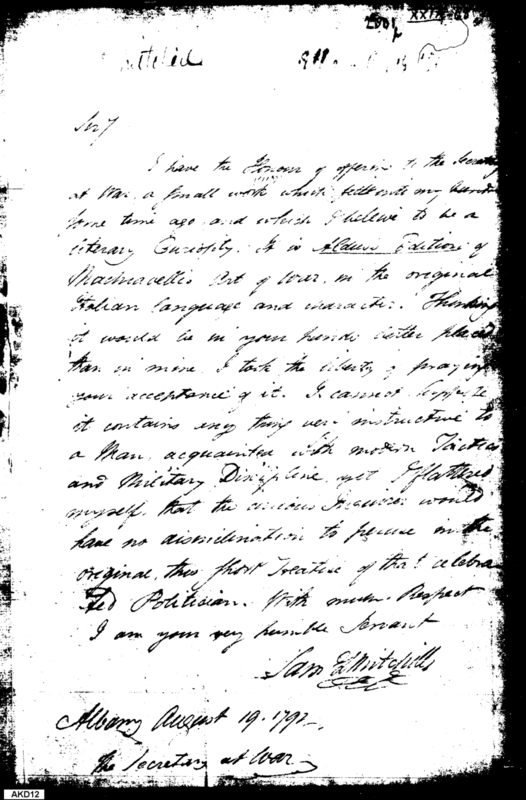 2801
XXIX
Sir
I have the Honour of offering to the Secretary
at War, a small work which fell into my hands
some time ago, and which I believe to be a
literary Curiosity. It is Aldus's Edition of
Machiavelli's Art of War, in the original
Italian language and character. Thinking
it would be in your hands better placed
than in mine, I took the liberty of praying
your acceptance of it. I cannot suppose
it contains any thing very instructive to
a Man, acquainted with modern Tactics
and Military Discipline, yet I flattered
myself, that the curious Inquirer would
have no disinclination to peruse in the
original, this short Treatise of that celebra
ted Politician. With much Respect
I am your very humble Servant
Sam L Mitchill
Albany August 19. 1792
The Secretary at War
AKD12